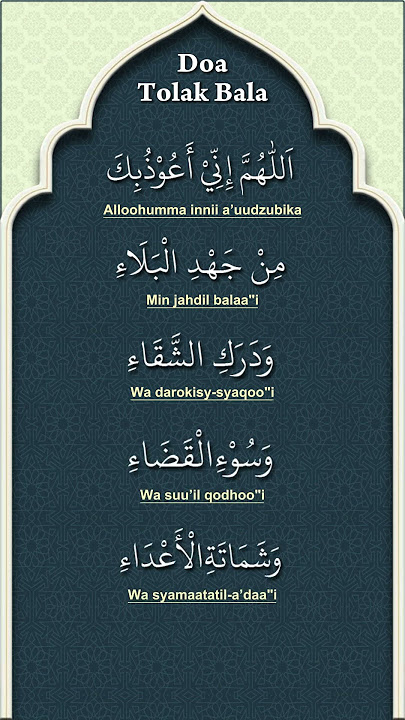 Doa
Tolak Bala
اَللّٰهُمَّ إِنِّيْ أَعُوْذُبِكَ
Alloohumma innii a’uudzubika
مِنْ جَهْدِ الْبَلَاءِ
Min jahdil balaa"i
وَدَرَكِ الشَّقَاءِ
Wa darokisy-syaqoo"i
وَسُوْءِالْقَضَاءِ
Wa suu’il qodhoo"i
وَشَمَاتَةِالْأَعْدَاءِ
Wa syamaatatil-a’daa"i